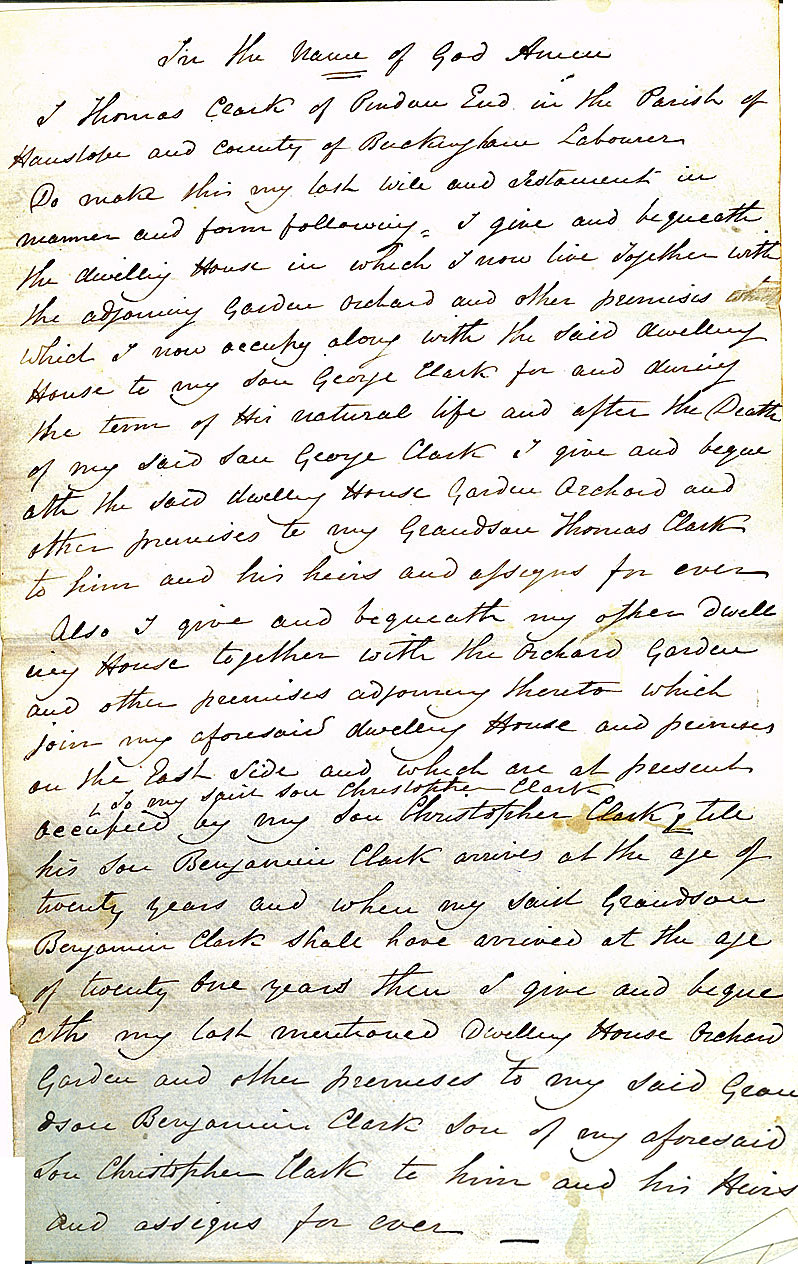 In the Name of God Amen
I Thomas Clark of Pindon End in the Parish of
Hanslope and county of Buckingham Labourer
Do make this my last will and Testament in
manner and form following = I give and bequeath
the dwelling House in which I now live Together with
the adjoining Garden orchard and other premises
which I now occupy along with the said dwelling
House to my son George Clark for and during
the term of His natural life and after the Death
of my said son George Clark I give and beque
ath the said dwelling House Garden Orchard and
other premises to my Grandson Thomas Clark
to him and his heirs and assigns for ever
Also I give and bequeath my other dwell
ing House together with the Orchard Garden
and other premises adjoining thereto which
join my aforesaid dwelling House and premises
on the East side and which are at present
To my said son Christopher Clark
occupied by my son Christopher Clark till
his son Benjamin Clark arrives at the age of
twenty years and when my said Grandson
Benjamin Clark shall have arrived at the age
of twenty one years then I give and beque
ath my last mentioned Dwelling House Orchard
Garden and other premises to my said Gran
dson Benjamin Clark son of my aforesaid
son Christopher Clark to him and his Heirs
and assigns for ever —